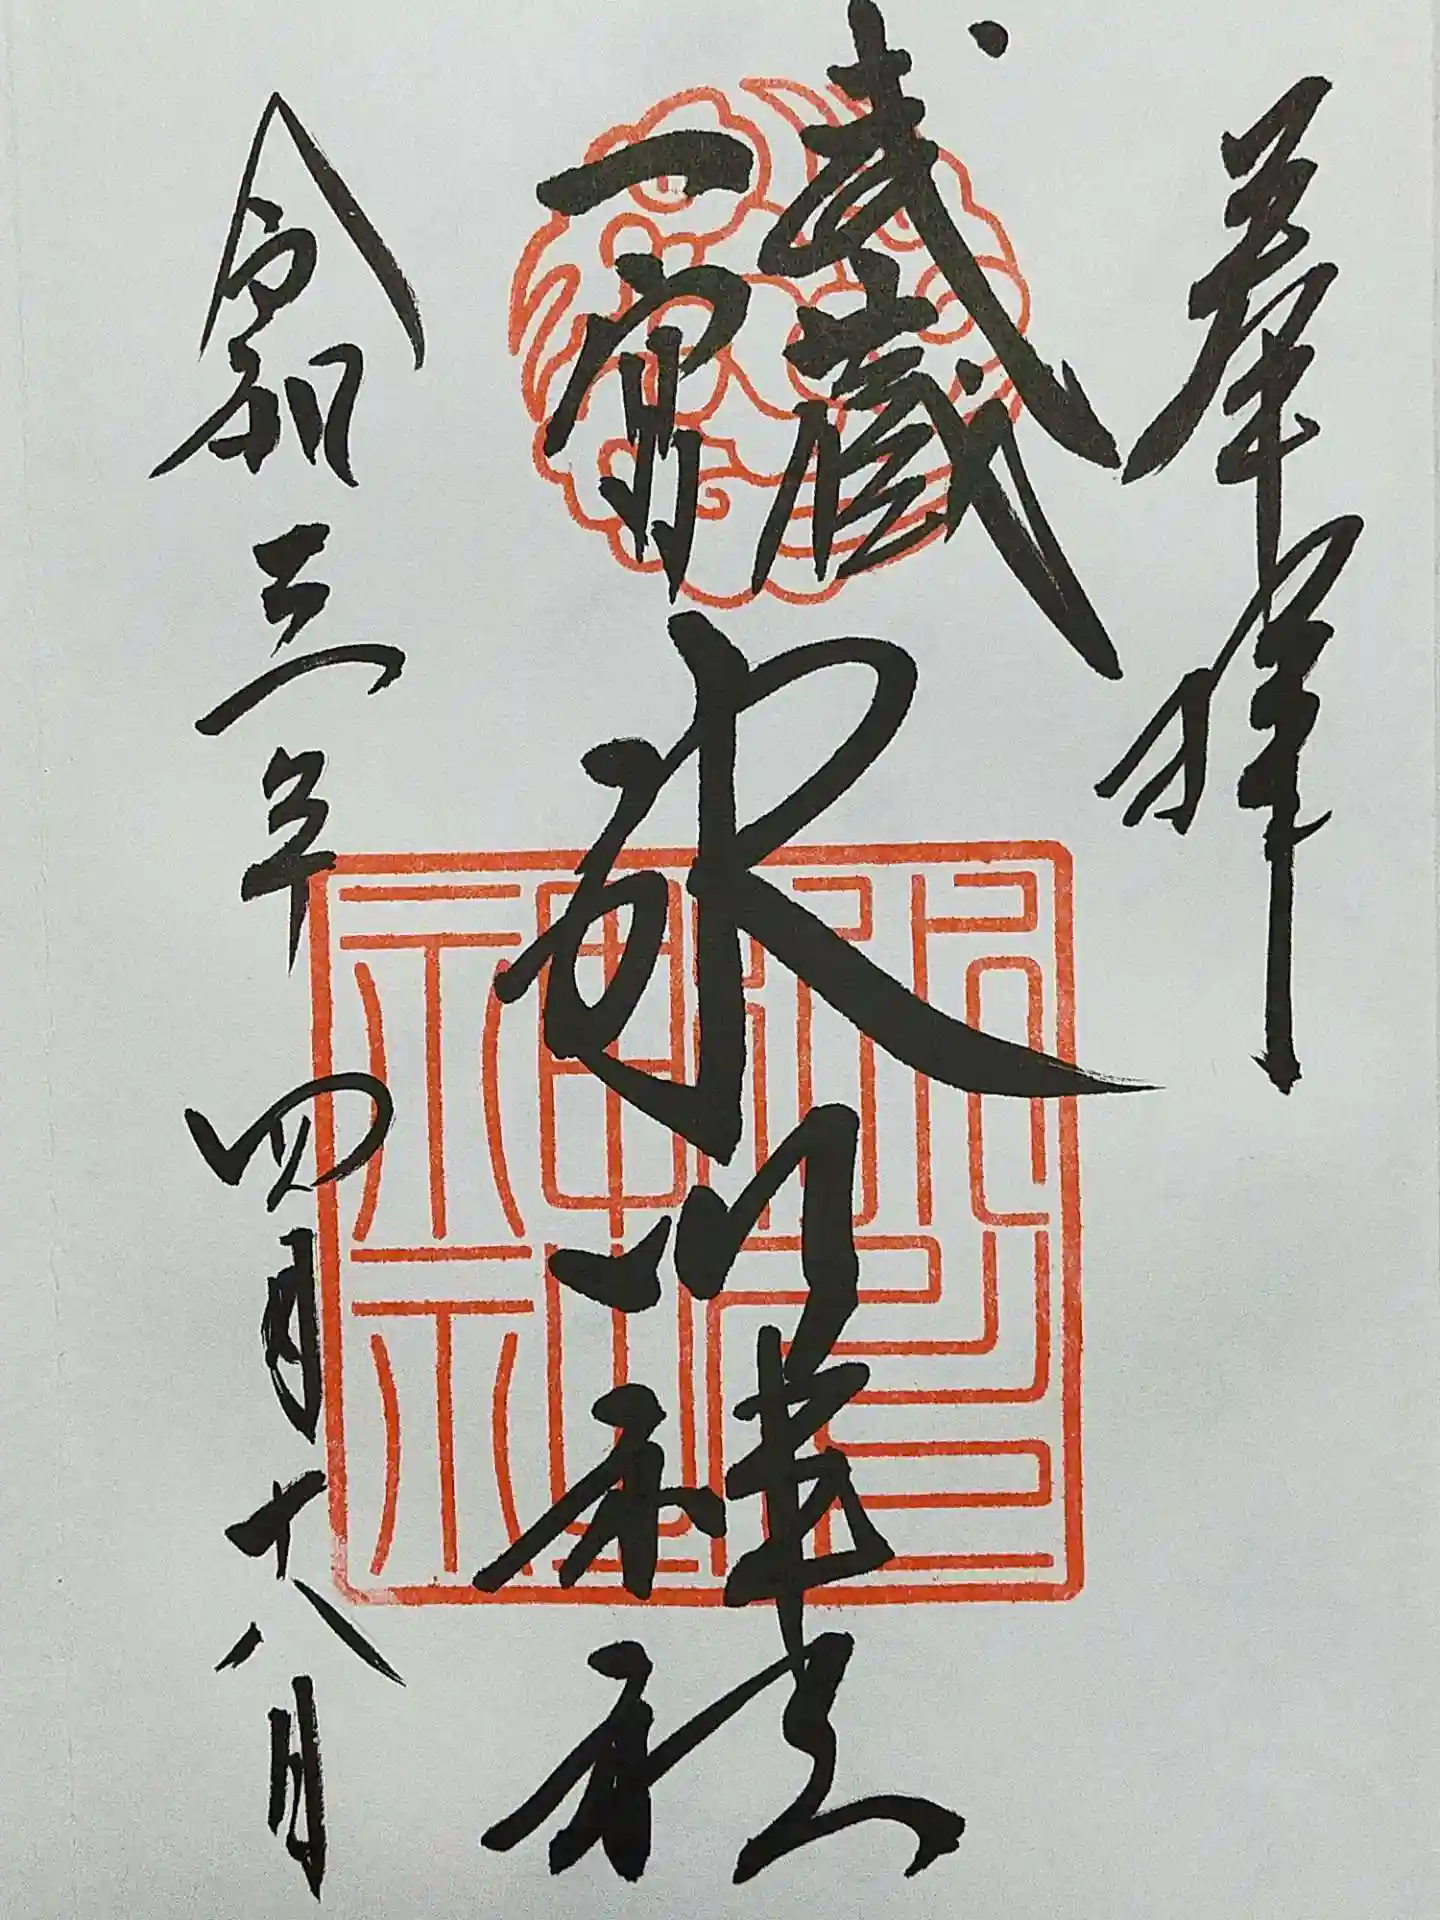 奉拝
武蔵
一宮
氷川神社
令和三年四月十八日